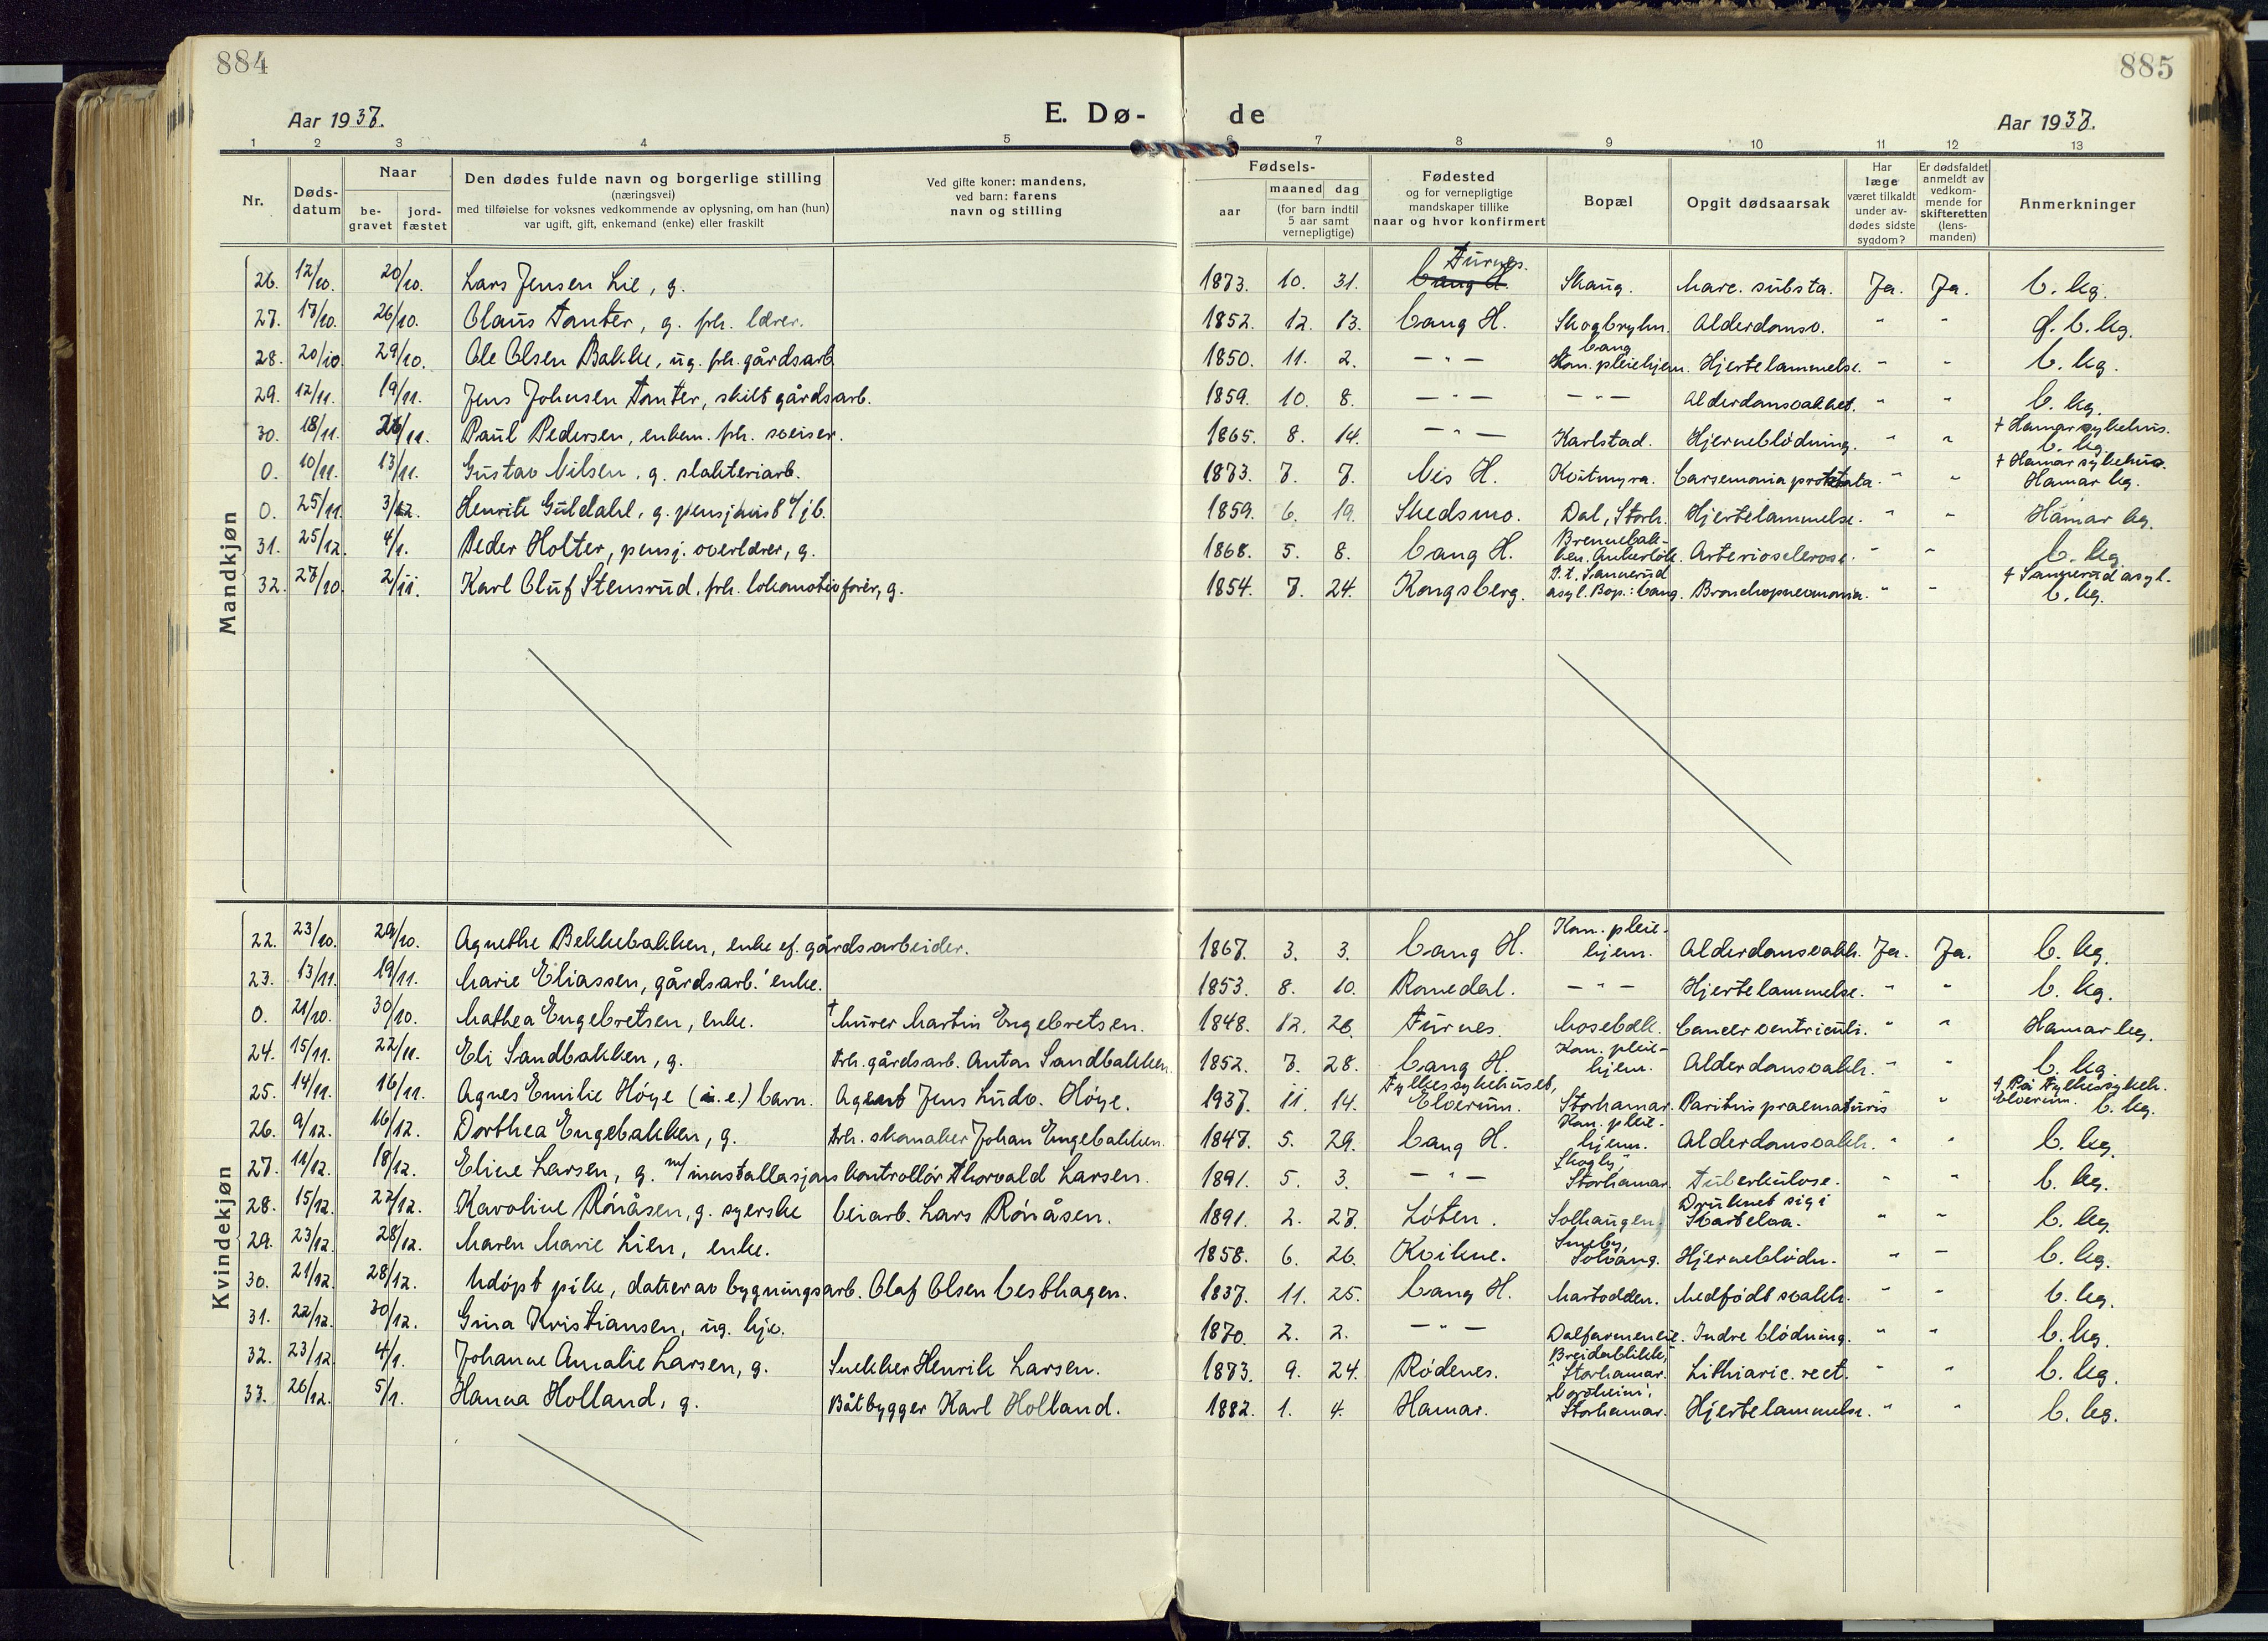 884
885
Aar 1937.
E. Dø-
de
Aar 1937.
1 2 3 4 5 6 7 8 9 10 11 12 13
Nr.
Døds-
datum
Naar
be-
gravet
jord-
fæstet
Den dødes fulde navn og borgerlige stilling
(næringsvei)
med tilføielse for voksnes vedkommende av oplysning, om han (hun)
var ugift, gift, enkemand (enke) eller fraskilt
Ved gifte koner: mandens,
ved barn: farens
navn og stilling
Fødsels-
aar
maaned dag
(for barn indtil
5 aar samt
vernepligtige)
Fødested
og for vernepligtige
mandskaper tillike
naar og hvor konfirmert
Bopæl
Opgit dødsaarsak
Har
læge
været tilkaldt
under av-
dødes sidste
sygdom?
Er dødsfaldet
anmeldt av
vedkom-
mende for
skifteretten
(lens-
manden)
Anmerkninger
Mandkjøn
26. 12/10. 20/10. Lars Jensen Lie, g. 1873. 10. 31. Vang H. Furnes. Skaug. Marc. substa. Ja. Ja. V. kg.
27. 17/10. 26/10. Olaus Tanter, g. frh. lærer. 1852. 12. 13. Vang H. Skogbryhn. Alderdomsv. " " V. kg.
28. 20/10 29/10. Ole Olsen Bakke, ug. frh. gårdsarb. 1850. 11. 2. — " — Vang Kom. pleiehjem. Hjertelammelse. " " V. kg.
29. 12/11. 19/11. Jens Johnsen Tanter, skilt gårdsarb. 1859. 10. 8. — " — — " — Alderdomsvakhet. " " V. kg.
30. 18/11. 26/11. Paul Pedersen, enkem. frh. sveiser. 1865. 8. 14. — " — Karlstad. Hjerneblødning. " " † Hamar sykehus. V. kg.
0. 10/11. 13/11. Gustav Nilsen, g. slakteriarb. 1873. 7. 7. Nes H. Koutmyra. Carsemonia prostata. " " † Hamar sykehus. Hamar kg.
0. 25/11. 3/12. Henrik Guldahl, g. pensjonist v/jb. 1859. 6. 19. Skedsmo. Dal, Storh. Hjertelammelse. " " Hamar kg.
31. 25/12. 4/1. Peder Holter, pensj. overlærer, g. 1868. 5. 8. Vang H. Brennebak-
ken. Ankerløk. Arteriosclerose. " " V. kg.
32. 27/10. 2/11. Karl Oluf Stensrud, frh. lokomotivfører, g. 1854. 7. 24. Kongsberg. D.t. Sannerud
asyl. Bop.: Vang. Bronchopneumonia. " " † Sannerud asyl. V. kg.
Kvindekjøn
22. 23/10. 29/10. Agnethe Bekkebakken, enke ef. gårdsarbeider. 1867. 3. 3. Vang H. Kom. pleie-
hjem. Alderdomsvakh. Ja. Ja. V. kg.
23. 13/11. 19/11. Marie Eliassen, gårdsarb.' enke. 1853. 8. 10. Romedal. — " — Hjertelammelse. " " V. kg.
0. 21/10. 30/10. Mathea Engebretsen, enke. † Murer Martin Engebretsen. 1848. 12. 26. Furnes. Mosebakk. Cancer ventriculi. " " Hamar kg.
24. 15/11. 22/11. Eli Sandbakken, g. Frh. gårdsarb. Anton Sandbakken. 1852. 7. 28. Vang H. Kom. pleie-
hjem. Alderdomsvakh. " " V. kg.
25. 14/11. 16/11. Agnes Emilie Høye (i. e.) barn. Agent Jens Ludv. Høye. 1937. 11. 14. Fylkessykehuset,
Elverum. Storhamar. Paritus praematuris " † På Fylkessykeh.
Elverum. V. kg.
26. 9/12. 16/12. Dorthea Engebakken, g. Frh. skomaker Johan Engebakken. 1847. 5. 29. Vang H. Kom. pleie-
hjem. Alderdomsvakh. " " V. kg.
27. 11/12. 18/12. Eline Larsen, g. m/ innstallasjonskontrollør Thorvald Larsen. 1891. 5. 3. — " — Skogly,
Storhamar. Tuberkulose. " " V. kg.
28. 15/12. 22/12. Karoline Rønåsen, g. syerske Veiarb. Lars Rønåsen. 1891. 2. 27. Løten. Solhaugen. Druknet sig i
Svartelva. " " V. kg.
29. 23/12. 28/12. Maren Marie Lien, enke. 1858. 6. 26. Kvikne. Smeby,
Solvang. Hjerneblødn. " " V. kg.
30. 21/12 28/12. Udøpt pike, datter av bygningsarb. Olaf Olsen Vesthagen. 1937. 11. 25. Vang H. Martodden. Medfødt svakh. " " V. kg.
31. 22/12. 30/12. Gina Kristiansen, ug. hjv. 1870. 2. 2. — " — Dalfarmen. Indre blødning. " " V. kg.
32. 23/12. 4/1. Johanne Amalie Larsen, g. Snekker Henrik Larsen. 1873. 9. 24. Rødenes. Breidablikk,
Storhamar. " " V. kg.
33. 26/12. 5/1. Hanna Holland, g. Båtbygger Karl Holland. 1882. 1. 4. Hamar. Storhamar. Hjertelammelse. " " V. kg.